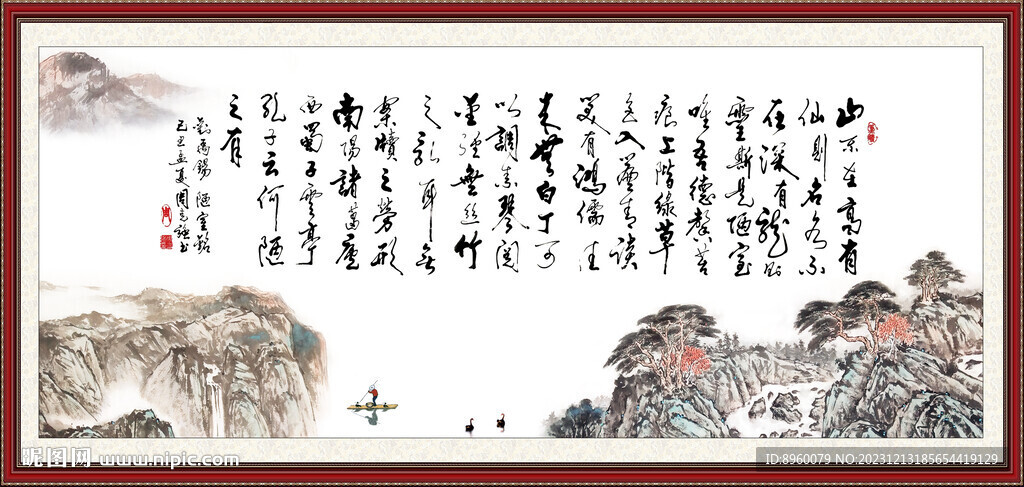 山不在高有
仙則名水不
在深有龍則
靈斯是陋室
唯吾德馨苔
痕上階綠草
色入簾青談
笑有鴻儒往
來無白丁可
以調素琴閱
金經無絲竹
之亂耳無
案牘之勞形
南陽諸葛廬
西蜀子雲亭
孔子云何陋
之有
劉禹錫 陋室銘
己丑孟夏周
昵图网 www.nipic.com
ID:8960079 NO:20231213185654419129